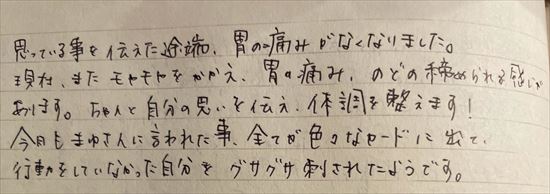 思っている事を伝えた途端、胃の痛みがなくなりました。
現在、またモヤモヤをかかえ、胃の痛み、のどの締められる感じが
あります。ちゃんと自分の思いを伝え、体調を整えます！
今日もまゆさんに言われた事、全てが色々なカードに出て、
行動をしていなかった自分をグサグサ刺されたようです。